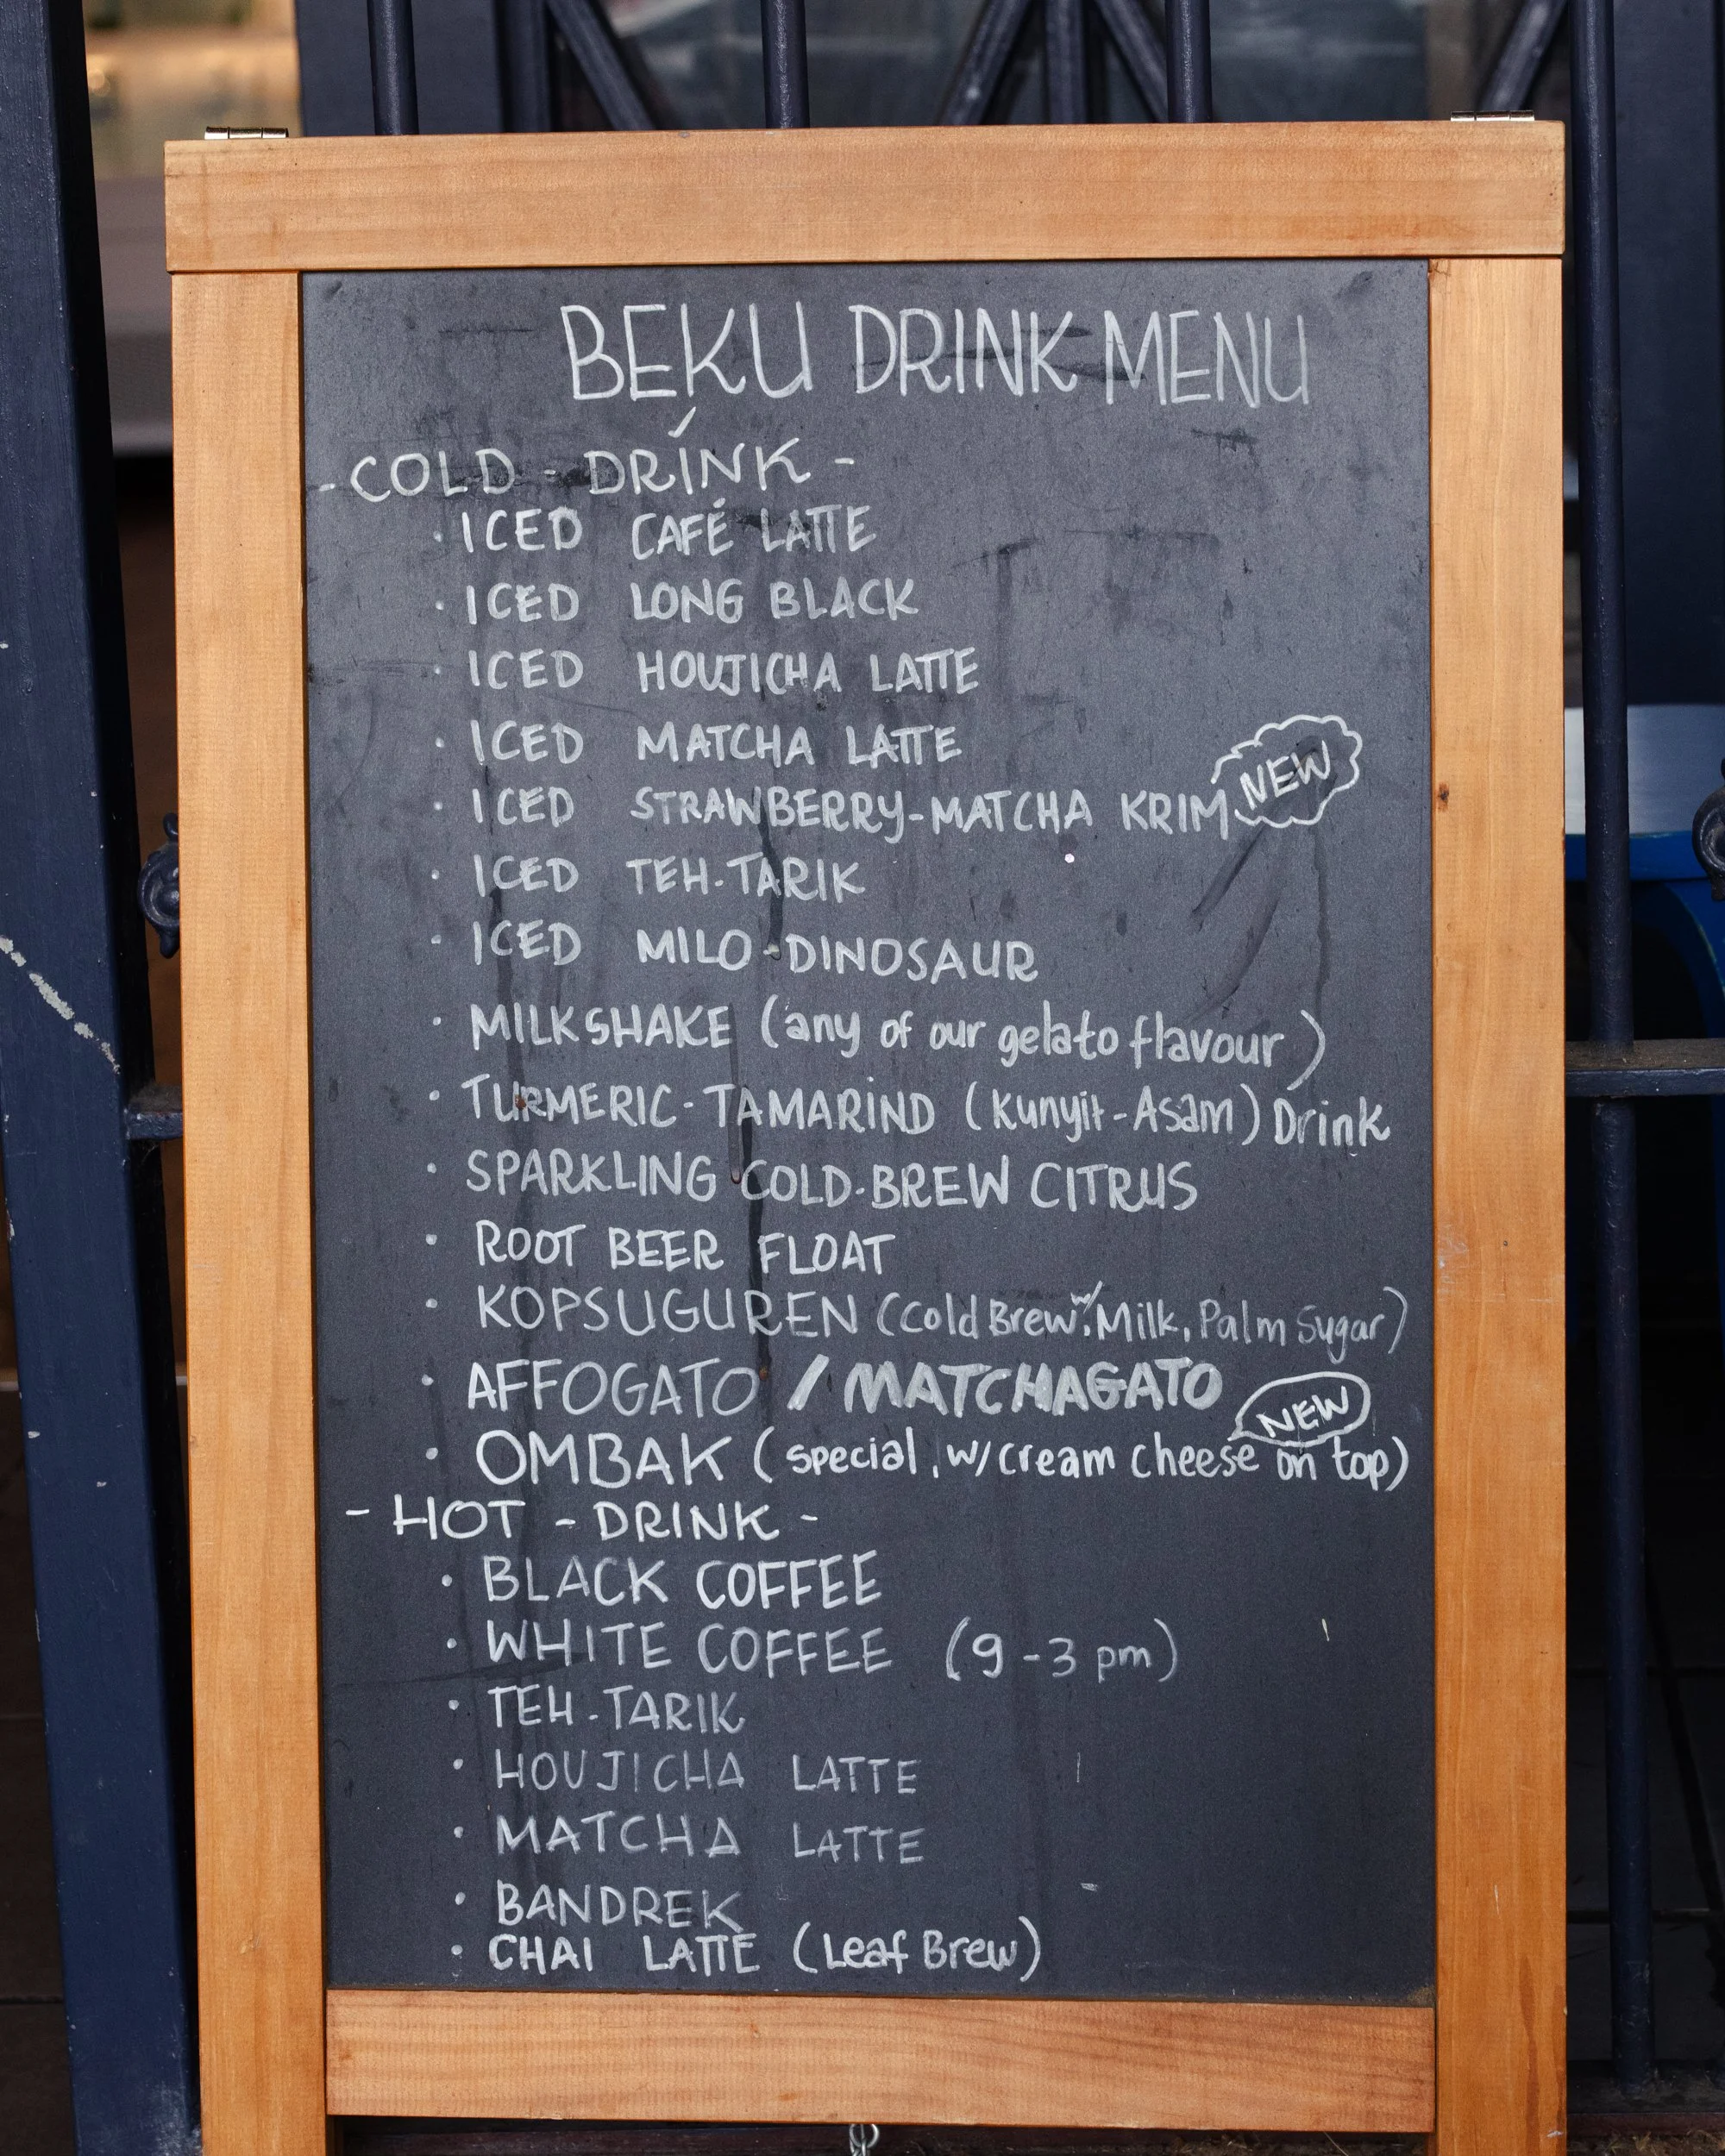 BEKU DRINK MENU
- COLD - DRINK -
· ICED CAFÉ LATTE
· ICED LONG BLACK
· ICED HOUJICHA LATTE
· ICED MATCHA LATTE
NEW
· ICED STRAWBERRY-MATCHA KRIM
· ICED TEH-TARIK
· ICED MILO-DINOSAUR
· MILKSHAKE (any of our gelato flavour)
· TURMERIC-TAMARIND (Kunyit-Asam) Drink
· SPARKLING COLD-BREW CITRUS
· ROOT BEER FLOAT
· KOPSUGUREN (Cold Brew w/ Milk, Palm Sugar)
· AFFOGATO / MATCHAGATO
NEW
· OMBAK (special, w/ cream cheese on top)
- HOT - DRINK -
· BLACK COFFEE
· WHITE COFFEE (9-3 pm)
· TEH-TARIK
· HOUJICHA LATTE
· MATCHA LATTE
· BANDREK
· CHAI LATTE (Leaf Brew)